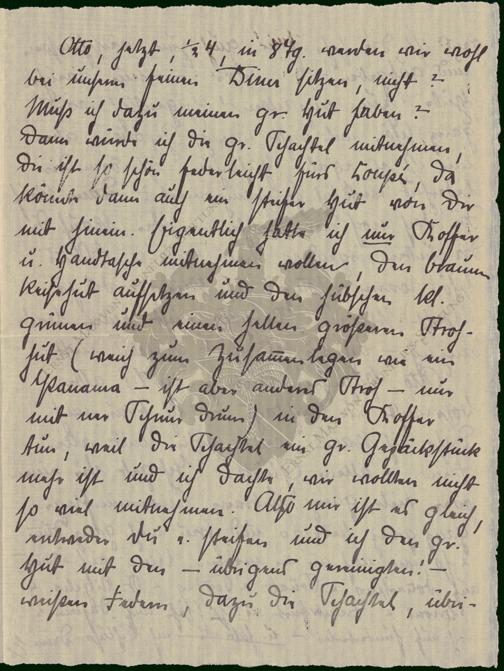 Otto, jetzt, ½ 4, in 8 Tg. werden wir wohl
bei unserm feinen Diner sitzen, nicht?
Muß ich dazu meinen gr. Hut haben?
Dann würde ich die gr. Schachtel mitnehmen,
die ist so schön federleicht fürs Coupé, da
könnte dann auch ein steifer Hut von Dir
mit hinein. Eigentlich hatte ich nur Koffer
u. Handtasche mitnehmen wollen, den braunen
Reisehut aufsetzen und den hübschen kl.
grünen und einen hellen größeren Stroh-
hut (weich zum Zusammenlegen wie ein
Panama – ist aber anderes Stroh – nur
mit ner Schnur drum) in den Koffer
tun, weil die Schachtel ein gr. Gepäckstück
mehr ist und ich dachte, wir wollten nicht
so viel mitnehmen. Also mir ist es gleich,
entweder Du e. steifen und ich den gr.
Hut mit den – übrigens gereinigten! –
weißen Federn, dazu die Schachtel, übri-